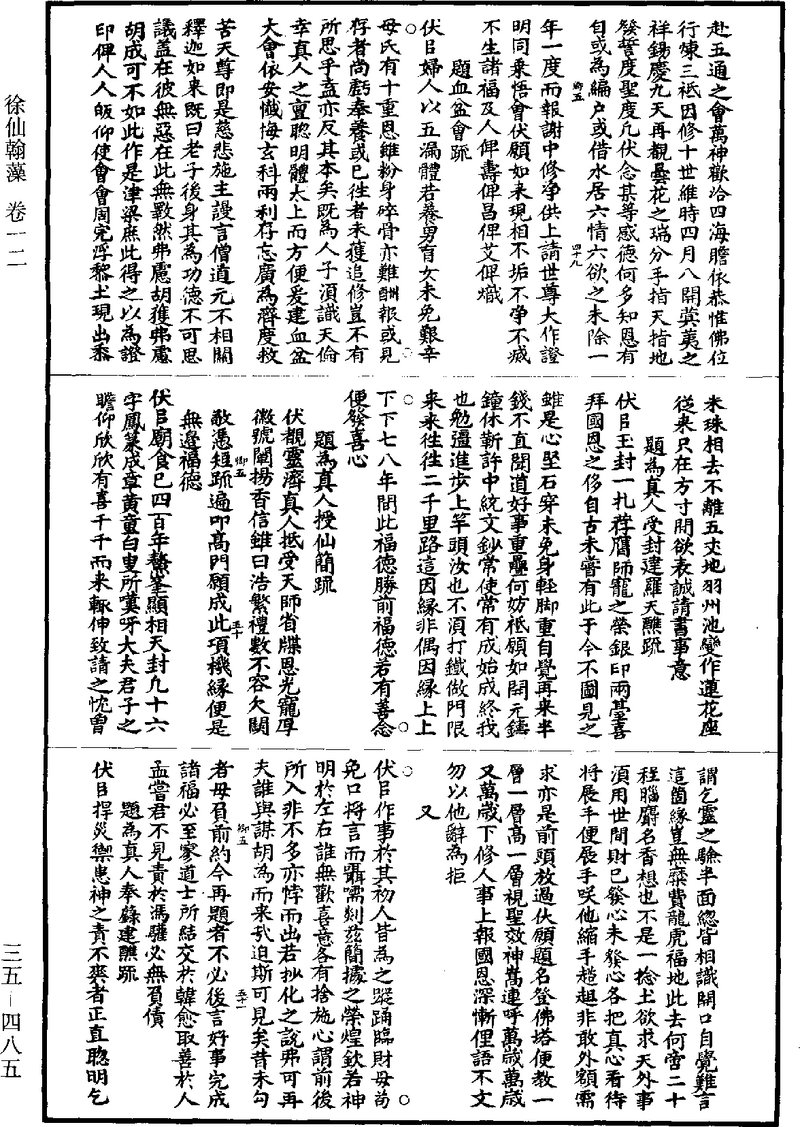 徐仙翰藻 卷一二
三五—四八五
赴五通之會萬神歡洽四海瞻依恭惟佛位
行煉三祇因修十世維時四月八開蓂莢之
祥錫慶九天再覩曇花之瑞分手指天指地
發誓度聖度凡伏念某等感德何多知恩有
自或為編户或借水居六情六欲之未除一
年一度而報謝中修净供上請世尊大作證
明同乗悟會伏願如来現相不垢不净不滅
不生諸福及人俾壽俾昌俾艾俾熾
題血盆會疏
伏㠯婦人以五漏體若養男育女未免艱辛
母氏有十重恩雖粉身碎骨亦難酬報或見
存者尚虧奉養或已徃者未獲追修豈不有
所思乎盍亦反其本矣既為人子須識天倫
幸真人之亶聰明體太上而方便爰建血盆
大會依安懺悔玄科兩利存忘廣為濟度救
苦天尊即是慈悲施主謾言僧道元不相關
釋迦如来既曰老子後身其為功德不可思
議盖在彼無惡在此無斁然弗慮胡獲弗爲
胡成可不如此作是津梁庶此得之以為證
印俾人人皈仰使會會周完浮黎土現出黍
米珠相去不離五丈地羽州池變作蓮花座
従来只在方寸間欲表誠請書事意
題為真人受封達羅天醮疏
伏㠯玉封一札荐膺師寵之榮銀印兩臺喜
拜國恩之侈自古未嘗有此于今不圖見之
雖是心堅石穿未免身輕脚重自覺再来半
錢不直聞道好事重疊何妨祇願如開元鑄
鐘休靳許中統文鈔常使常有成始成終我
也勉彊進步上竿頭汝也不須打鐵做門限
来来徃徃二千里路這因縁非偶因縁上上
下下七八年間此福德勝前福德若有善念
便發喜心
題為真人授仙簡疏
伏覩靈濟真人抵受天師省牒恩光寵厚
徽號闡揚香信雖曰浩繁禮數不容欠闕
敬憑短疏遍叩髙門願成此項機縁便是
無邊福德
伏㠯廟食已四百年鰲峯顯相天封凡十六
字鳳篆成章黄童白叟所嘆呀大夫君子之
瞻仰欣欣有喜千千而来輙伸致請之忱曽
謂乞靈之驗半面緫皆相識開口自覺難言
這箇緣豈無縻費龍虎福地此去何啻二十
程腦麝名香想也不是一捻土欲求天外事
須用世間財已發心未發心各把真心看待
將展手便展手咲他縮手趑趄非敢外額需
求亦是前頭放過伏願題名登佛塔便教一
層一層髙一層視聖效神嵩連呼萬歳萬歳
又萬歳下修人事上報國恩深慚俚語不文
勿以他辭為拒
又
伏㠯作事於其初人皆為之踨踊臨財毋茍
免口將言而聶嚅剡兹簡據之榮煌欽若神
明於左右誰無歡喜意各有捨施心謂前後
所入非不多亦悖而出若抄化之說弗可再
夫誰與謀胡為而来哉迫斯可見矣昔未勾
者毋負前約今再題者不必後言好事完成
諸福必至寥道士所結交於韓愈取善於人
孟嘗君不見責於馮驩必無負債
題為真人奉籙建醮疏
伏㠯捍災禦患神之責不爽者正直聰明乞